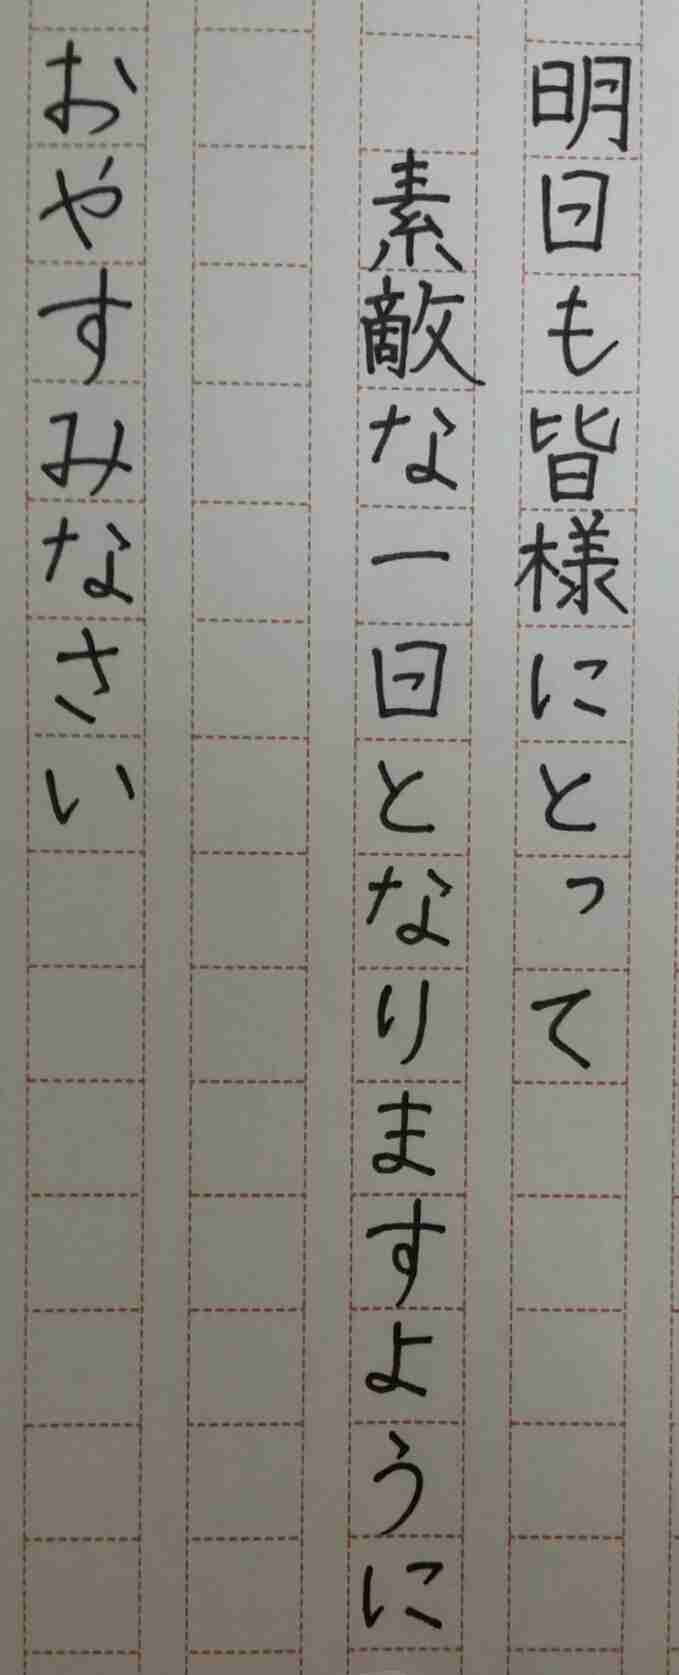 明日も皆様にとって
素敵な一日となりますように
おやすみなさい